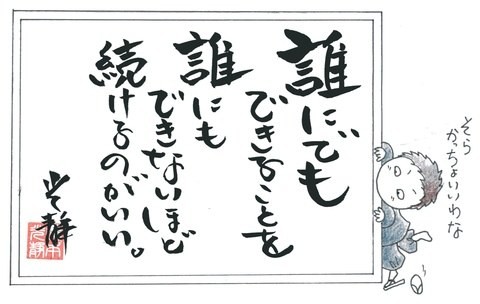 そら
かっちょいいわな
誰にでも
できることを
誰にも
できないほど
続けるのがいい。